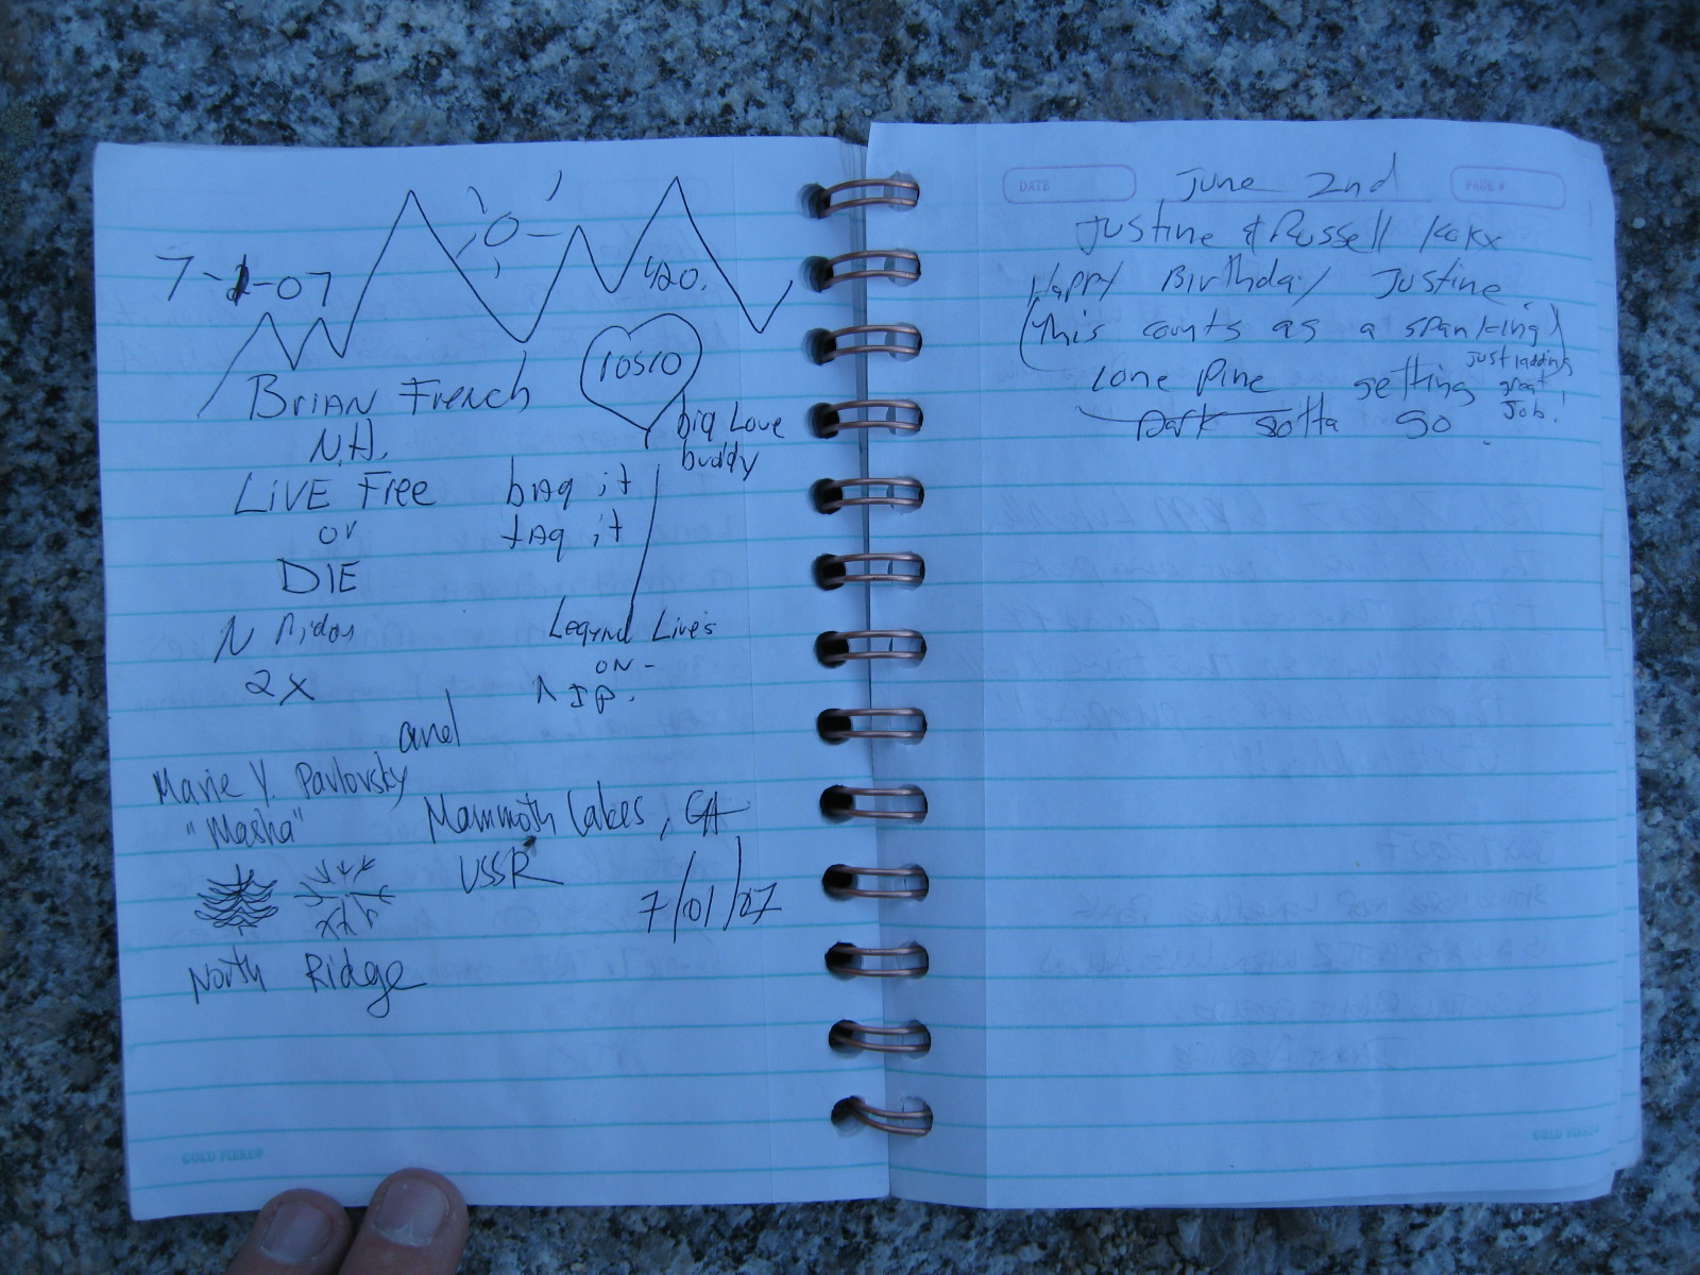 7-1-07
420.
Brian French
N.H.
LiVE Free
or
DIE
N Ridge
2x
rosco
big Love
buddy
bag it
tag it
Legend Lives
on-
RIP.
and
Marie Y. Pavlovsky
"Masha"
Mammoth Lakes, CA
USSR
7/01/07
North Ridge
GOLD FIBRE®
DATE
PAGE #
June 2nd
Justine & Russell
Happy Birthday Justine.
(This counts as a spanking)
Lone Pine getting
Dark gotta go.
just kidding
great
Job!
GOLD FIBRE®